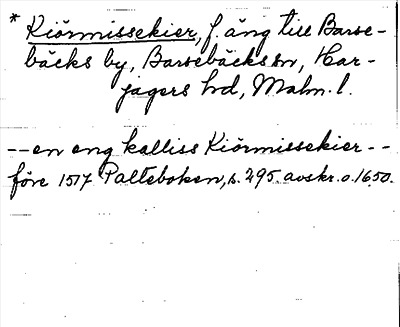 * Kiörmissekier, f. äng till Barse-
bäcks by, Barsebäcks sn, Har-
jagers hd, Malm. l.
-- en eng kalliss Kiörmissekier --
före 1517 Palteboken, s. 295. avskr. o. 1650.